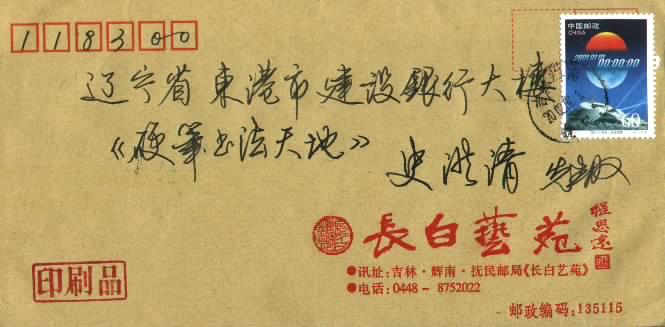 118300
中国邮政
CHINA
2001.01.01
00:00:00
60
辽宁省東港市建设銀行大樓
《硬筆书法天地》
史洪清 先生收
長白藝苑
●讯址:吉林·辉南·抚民邮局《长白艺苑》
●电话:0448－8752022
印刷品
邮政编码:135115